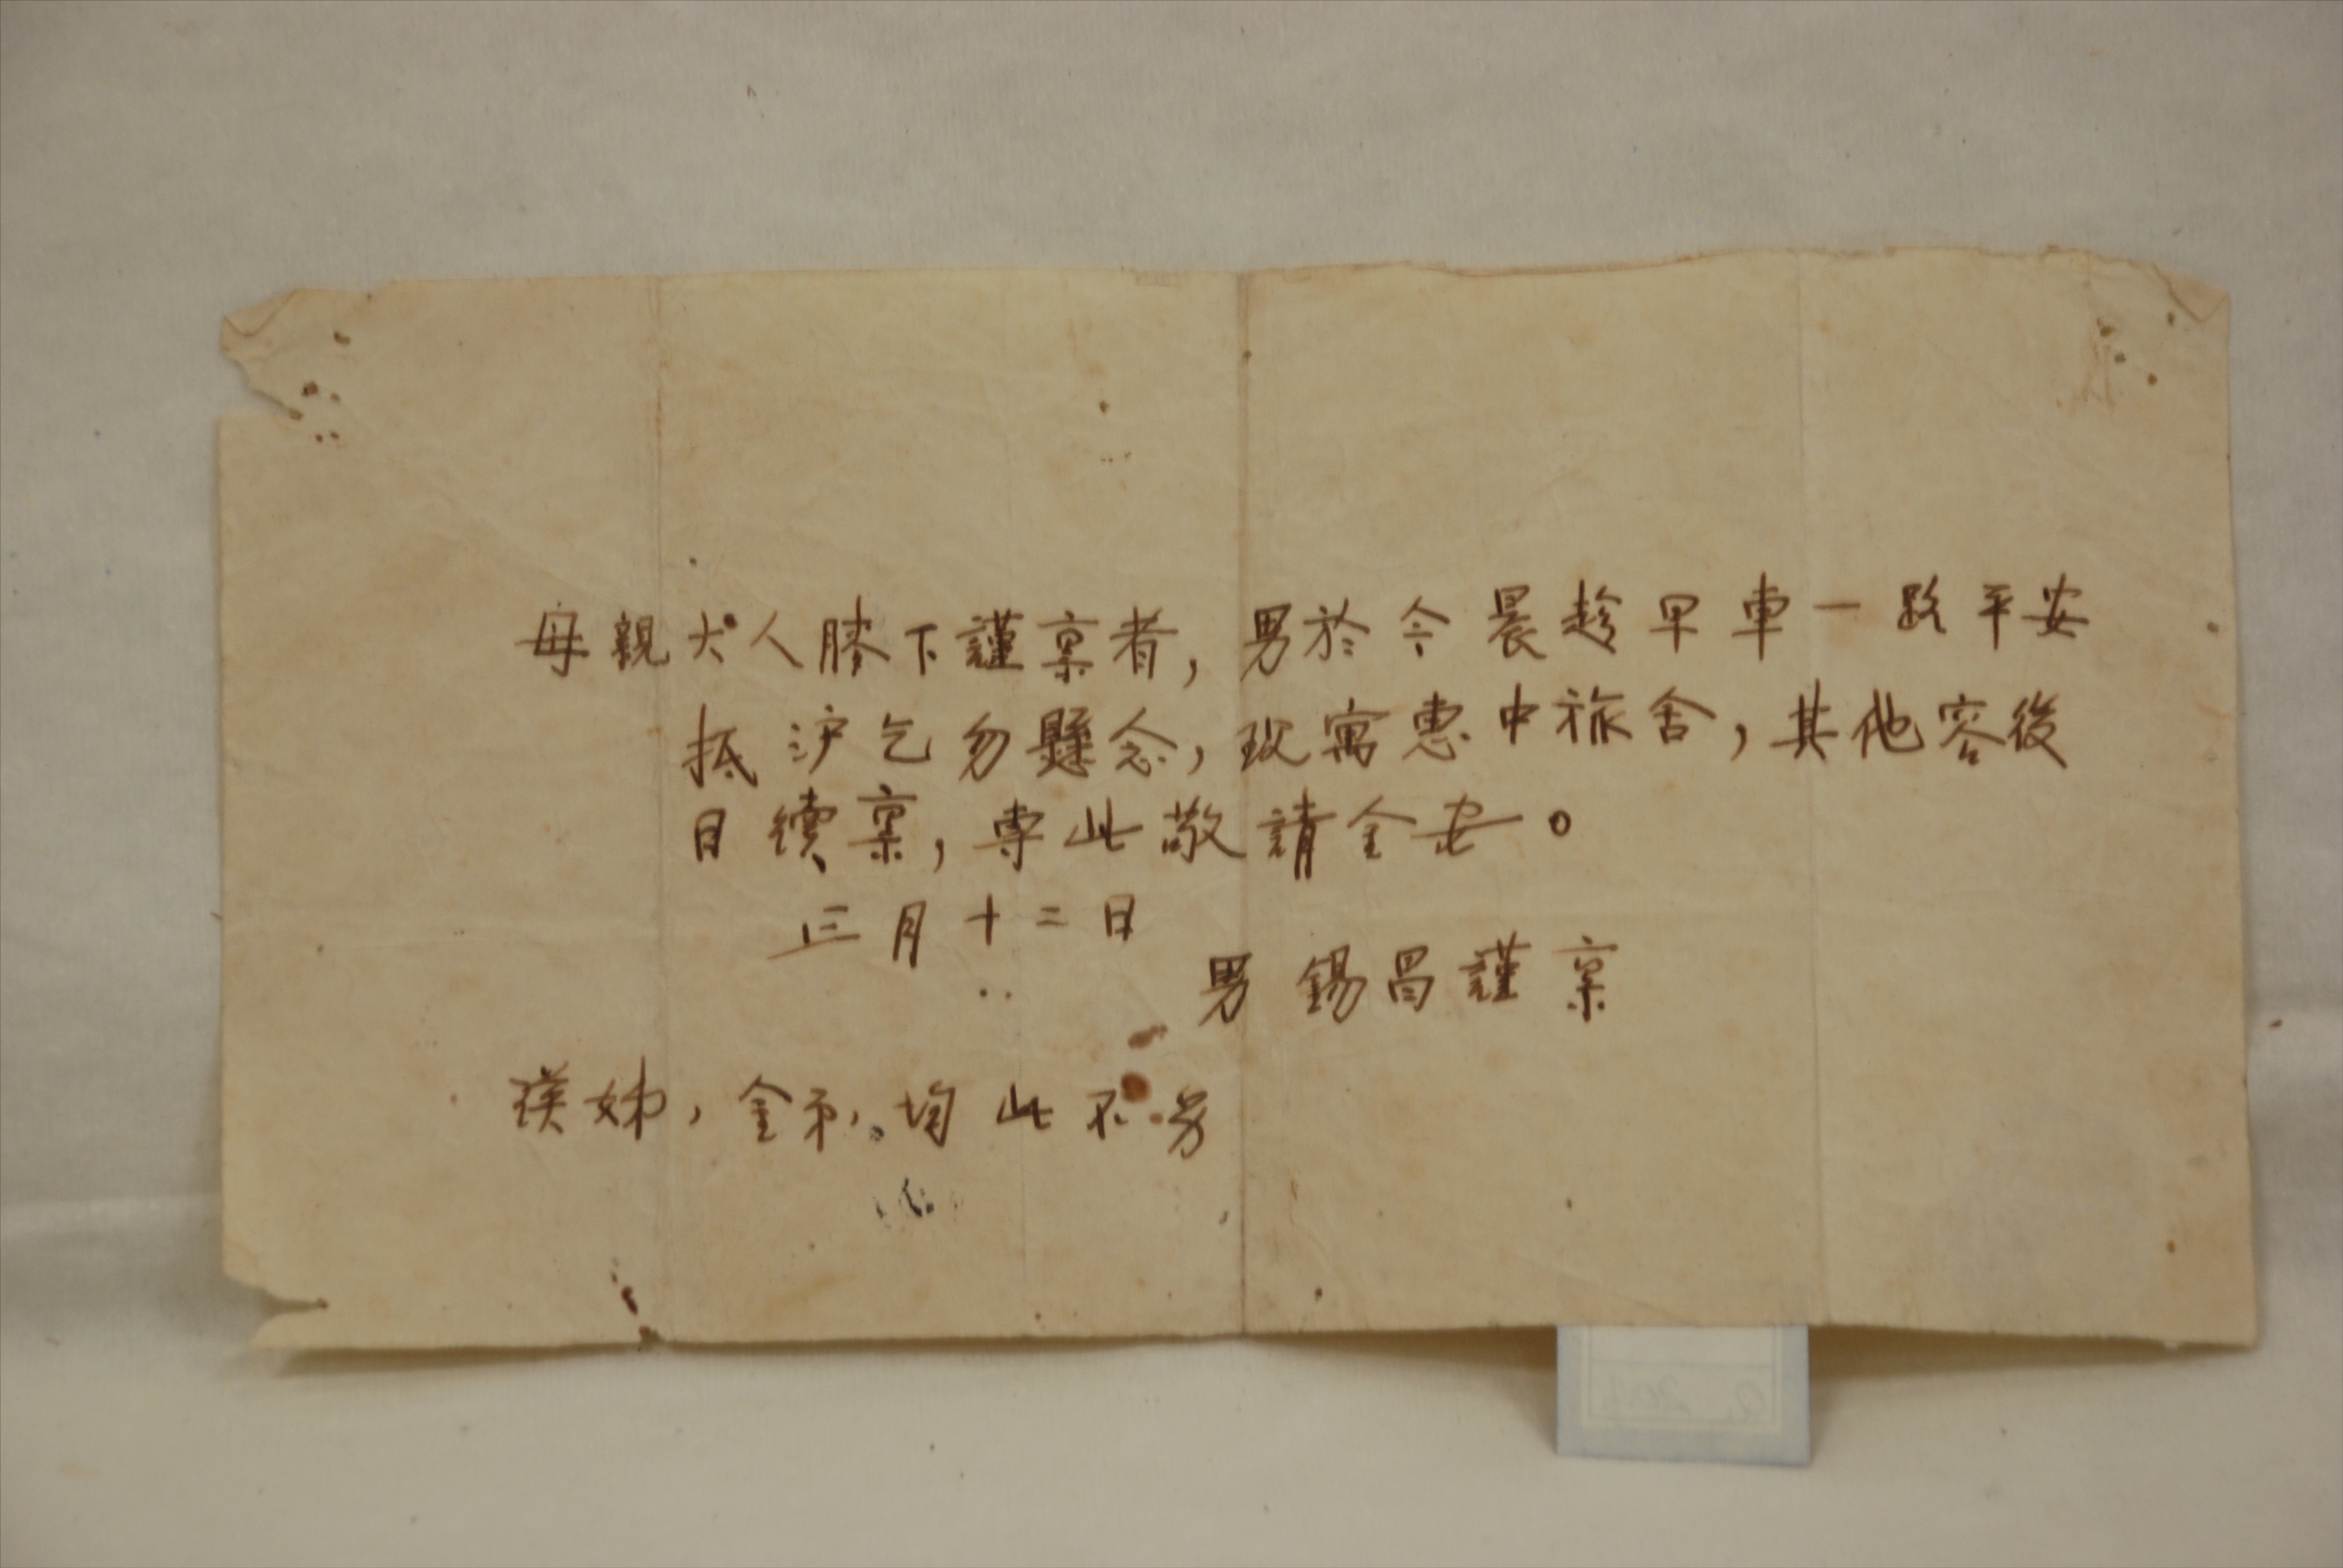 母親大人膝下謹稟者，男於今晨趁早車一路平安
抵沪乞勿懸念，现寓惠中旅舍，其他容後
日續稟，専此敬請金安。
正月十二日
男錫昌謹稟
瑛姊，金弟，均此不另